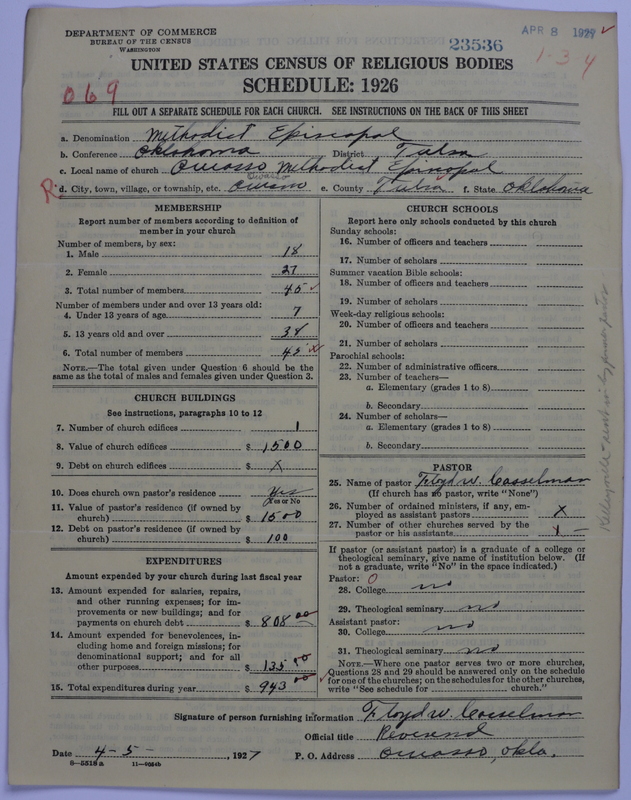 DEPARTMENT OF COMMERCE
BUREAU OF THE CENSUS
WASHINGTON
23536
APR 8 1927
1-3-4
UNITED STATES CENSUS OF RELIGIOUS BODIES
SCHEDULE: 1926
069
FILL OUT A SEPARATE SCHEDULE FOR EACH CHURCH. SEE INSTRUCTIONS ON THE BACK OF THIS SHEET
a. Denomination Methodist Episcopal
b. Conference Oklahoma District Tulsa
c. Local name of church Owasso Methodist Episcopal
Owasso
R. d. City, town, village, or township, etc. Owasso e. County Tulsa f. State Oklahoma
MEMBERSHIP
Report number of members according to definition of
member in your church
Number of members, by sex:
1. Male 18
2. Female 27
3. Total number of members 45
Number of members under and over 13 years old:
4. Under 13 years of age 7
5. 13 years old and over 38
6. Total number of members 45
NOTE.—The total given under Question 6 should be
same as the total of males and females given under Question 3.
CHURCH BUILDINGS
See instructions, paragraphs 10 to 12
7. Number of church edifices 1
8. Value of church edifices $ 1500
9. Debt on church edifices $ X
10. Does church own pastor's residence Yes
Yes or No
11. Value of pastor's residence (if owned by
church) $ 1500
12. Debt on pastor's residence (if owned by
church) $ 100
EXPENDITURES
Amount expended by your church during last fiscal year
13. Amount expended for salaries, repairs,
and other running expenses; for im-
provements or new buildings; and for
payments on church debt $ 808 00
14. Amount expended for benevolences, in-
cluding home and foreign missions; for
denominational support; and for all
other purposes $ 135 00
15. Total expenditures during year $ 943 00
CHURCH SCHOOLS
Report here only schools conducted by this church
Sunday schools:
16. Number of officers and teachers
17. Number of scholars
Summer vacation Bible schools:
18. Number of officers and teachers
19. Number of scholars
Week-day religious schools:
20. Number of officers and teachers
21. Number of scholars
Parochial schools:
22. Number of administrative officers
23. Number of teachers—
a. Elementary (grades 1 to 8)
b. Secondary
24. Number of scholars—
a. Elementary (grades 1 to 8)
b. Secondary
PASTOR
25. Name of pastor Floyd W. Casselman
(If church has no pastor, write "None")
26. Number of ordained ministers, if any, em-
ployed as assistant pastors X
27. Number of other churches served by the
pastor or his assistants 1
If pastor (or assistant pastor) is a graduate of a college or
theological seminary, give name of institution below. (If
not a graduate, write "No" in the space indicated.)
Pastor: 0
28. College no
29. Theological seminary no
Assistant pastor:
30. College no
31. Theological seminary no
NOTE.—Where one pastor serves two or more churches,
Questions 28 and 29 should be answered only on the schedule
for one of the churches; on the schedules for the other churches,
write "See schedule for church."
Signature of person furnishing information Floyd W. Casselman
Official title Reverend
Date 4-5- , 1927 P. O. Address Owasso, Okla.
8-5518a 11-9054b